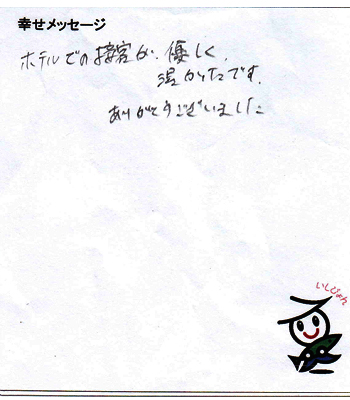 幸せメッセージ
ホテルでの接客が、優しく、
温かったです。
ありがとうございました
いしぴょん